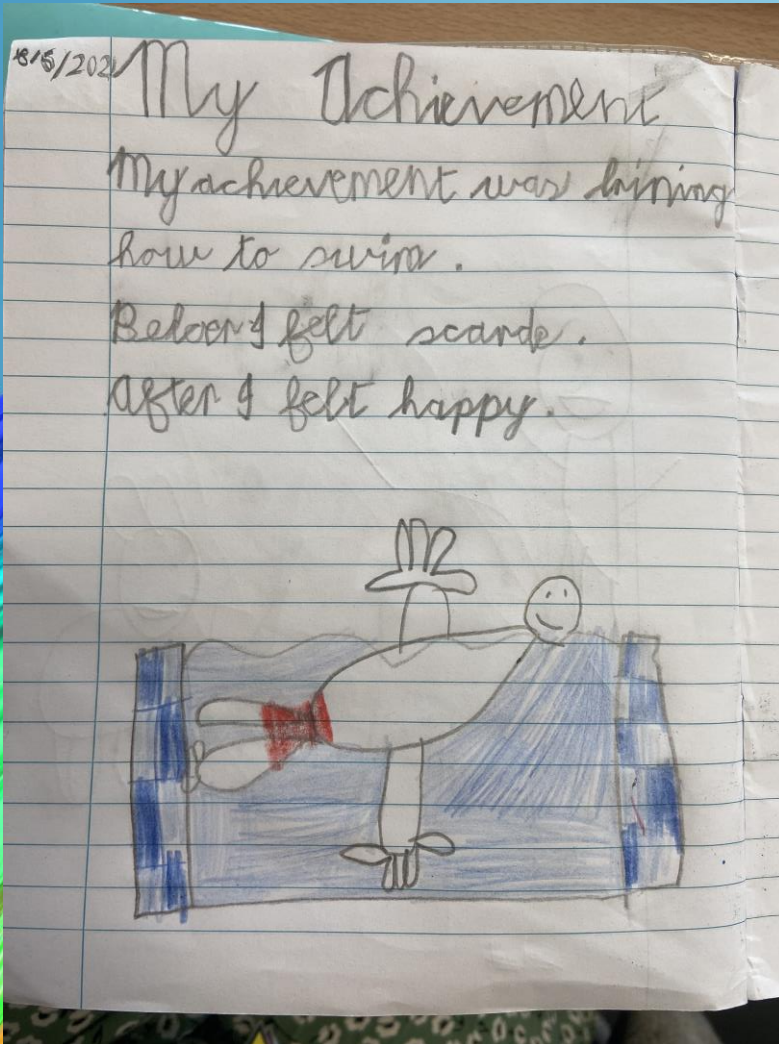 My Achievement
My achievement was lrining
how to swim.
Befoer I felt scarde.
After I felt happy.